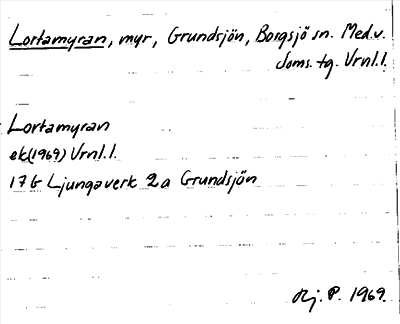 Lortamyran, myr, Grundsjön, Borgsjö sn. Med.v.
doms. tg. Vrnl. l.
Lortamyran
ek(1969) Vrnl. l.
17G Ljungaverk 2a Grundsjön
P. 1969.